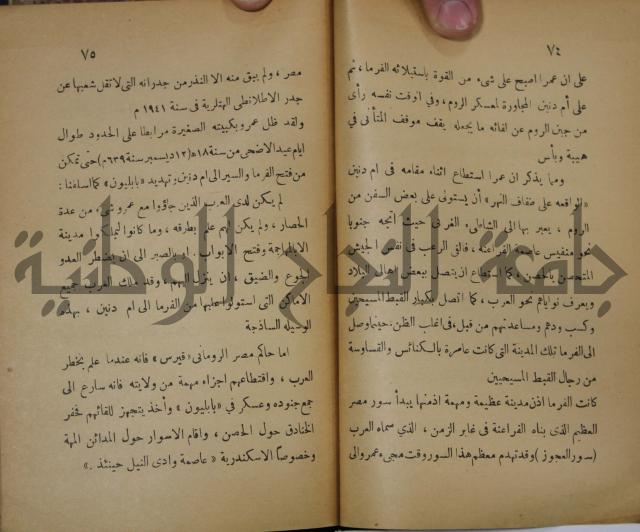 ٧٤
على ان عمرا اصبح على شىء من القوة باستيلائه الفرما ، ثم
على أم دنين المجاورة لعسكر الروم ، وفى الوقت نفسه رأى
من جبن الروم عن لقائه ما يجعله يقف موقف المتأنى فى
هيبة وبأس
ومما يذكر ان عمرا استطاع اثناء مقامه فى ام دنين
«الواقعه على ضفاف النهر» أن يستولى على بعض السفن من
الروم ، يعبر بها الى الشاطىء الغربى حيث اتجه جنوبا
نحو منفيس عاصمة الفراعنة ، فالقى الرعب فى نفس الجيش
المتحصن بالحصن ، كما استطاع ان يتصل ببعض اهالى البلاد
ويعرف نواياهم نحو العرب ، كما اتصل بكبار القبط المسيحيين
وكسب ودهم ومساعدتهم من قبل ، فى اغلب الظن ، حينما وصل
الى الفرما تلك المدينة التى كانت عامرة بالكنائس والقساوسة
من رجال القبط المسيحيين
كانت الفرما اذن مدينة عظيمة ومهمة اذ منها يبدأ سور مصر
العظيم الذى بناه الفراعنة فى غابر الزمن ، الذى سماه العرب
(سور العجوز) وقد تهدم معظم هذا السور وقت مجىء عمرو الى
٧٥
مصر ، ولم يبق منه الا النذر من جدرانه التى لا تقل شعبها عن
جدر الاطلانطى الهتلرية فى سنة ١٩٤١ م
ولقد ظل عمرو بكتيبته الصغيرة مرابطا على الحدود طوال
ايام عيد الاضحى من سنة ١٨ ه (١٢ ديسمبر سنة ٦٣٩ م) حتى تمكن
من فتح الفرما والسير الى ام دنين وتهديد «بابليون» كما اسلفنا :
لم يكن لدى العرب الذين جاؤوا مع عمرو شىء من عدة
الحصار ، ولم يكن لهم علم بطرقه ، وما كانوا ليملكوا مدينة
الا بالمهاجمة وفتح الابواب . او بالصبر الى ان يضطر العدو
الجوع والضيق ، ان ينزل اليهم ، وقد ملك العرب جميع
الاماكن التى استولوا عليها من الفرما الى ام دنين ، بهذه
الوسيله الساذجة
اما حاكم مصر الرومانى «قيرس» فانه عندما علم بخطر
العرب ، واقتطاعهم اجزاء مهمة من ولايته فانه سارع الى
جمع جنوده وعسكر فى «بابليون» وأخذ يتجهز للقائهم فحفر
الخنادق حول الحصن ، واقام الاسوار حول المدائن المهمة
وخصوصاً الاسكندرية «عاصمة وادى النيل حينئذ .»
جامعة النجاح الوطنية